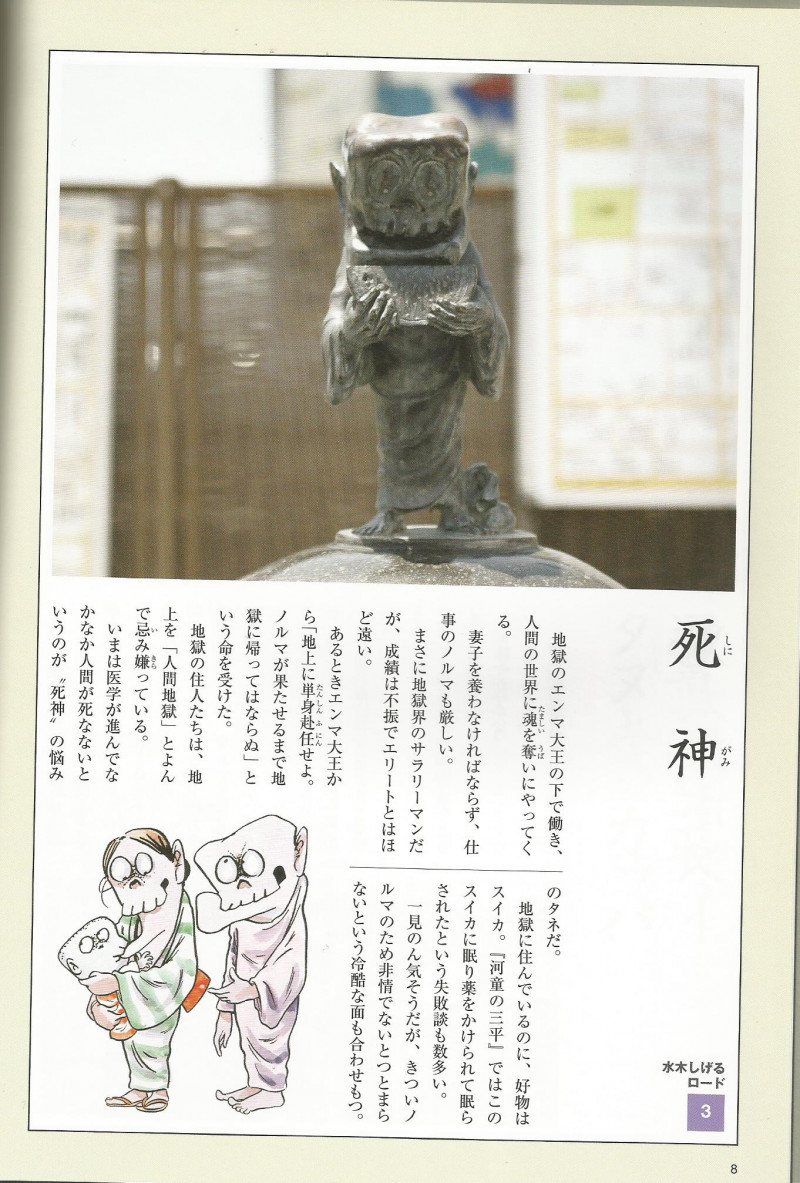 死神
しにがみ
地獄のエンマ大王の下で働き、
人間の世界に魂を奪いにやってく
たましい うば
る。
妻子を養わなければならず、仕
事のノルマも厳しい。
まさに地獄界のサラリーマンだ
が、成績は不振でエリートとはほ
ど遠い。
あるときエンマ大王か
ら「地上に単身赴任せよ。
たんしんふにん
ノルマが果たせるまで地
獄に帰ってはならぬ」と
いう命を受けた。
地獄の住人たちは、地
上を「人間地獄」とよん
で忌み嫌っている。
い きら
いまは医学が進んでな
かなか人間が死なないと
いうのが〝死神〟の悩み
のタネだ。
地獄に住んでいるのに、好物は
スイカ。『河童の三平』ではこの
スイカに眠り薬をかけられて眠ら
されたという失敗談も数多い。
一見のん気そうだが、きついノ
ルマのため非情でないとつとまら
ないという冷酷な面も合わせもつ。
水木しげる
ロード
3
8